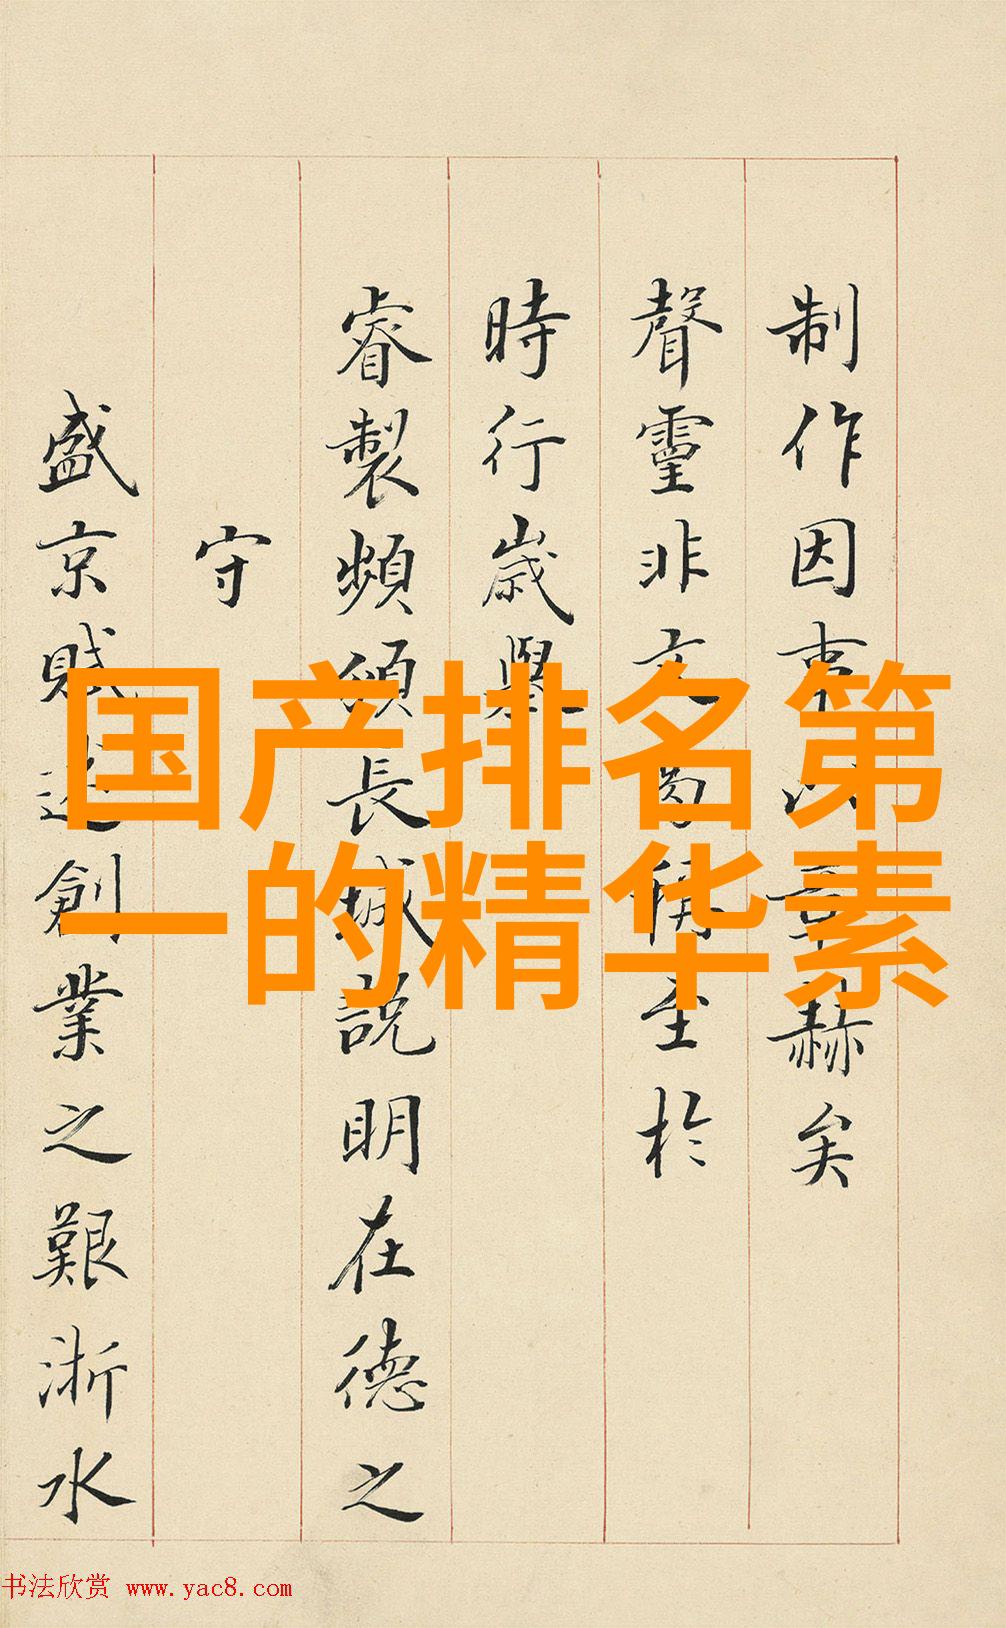 制作因革以章赫矣
聲靈非文曷稱至於
時行歲舉
睿製頻頒長城說明在德之
守
盛京賦述創業之艱浙水
国产排名第
一的精华素
书法欣赏 www.yac8.com